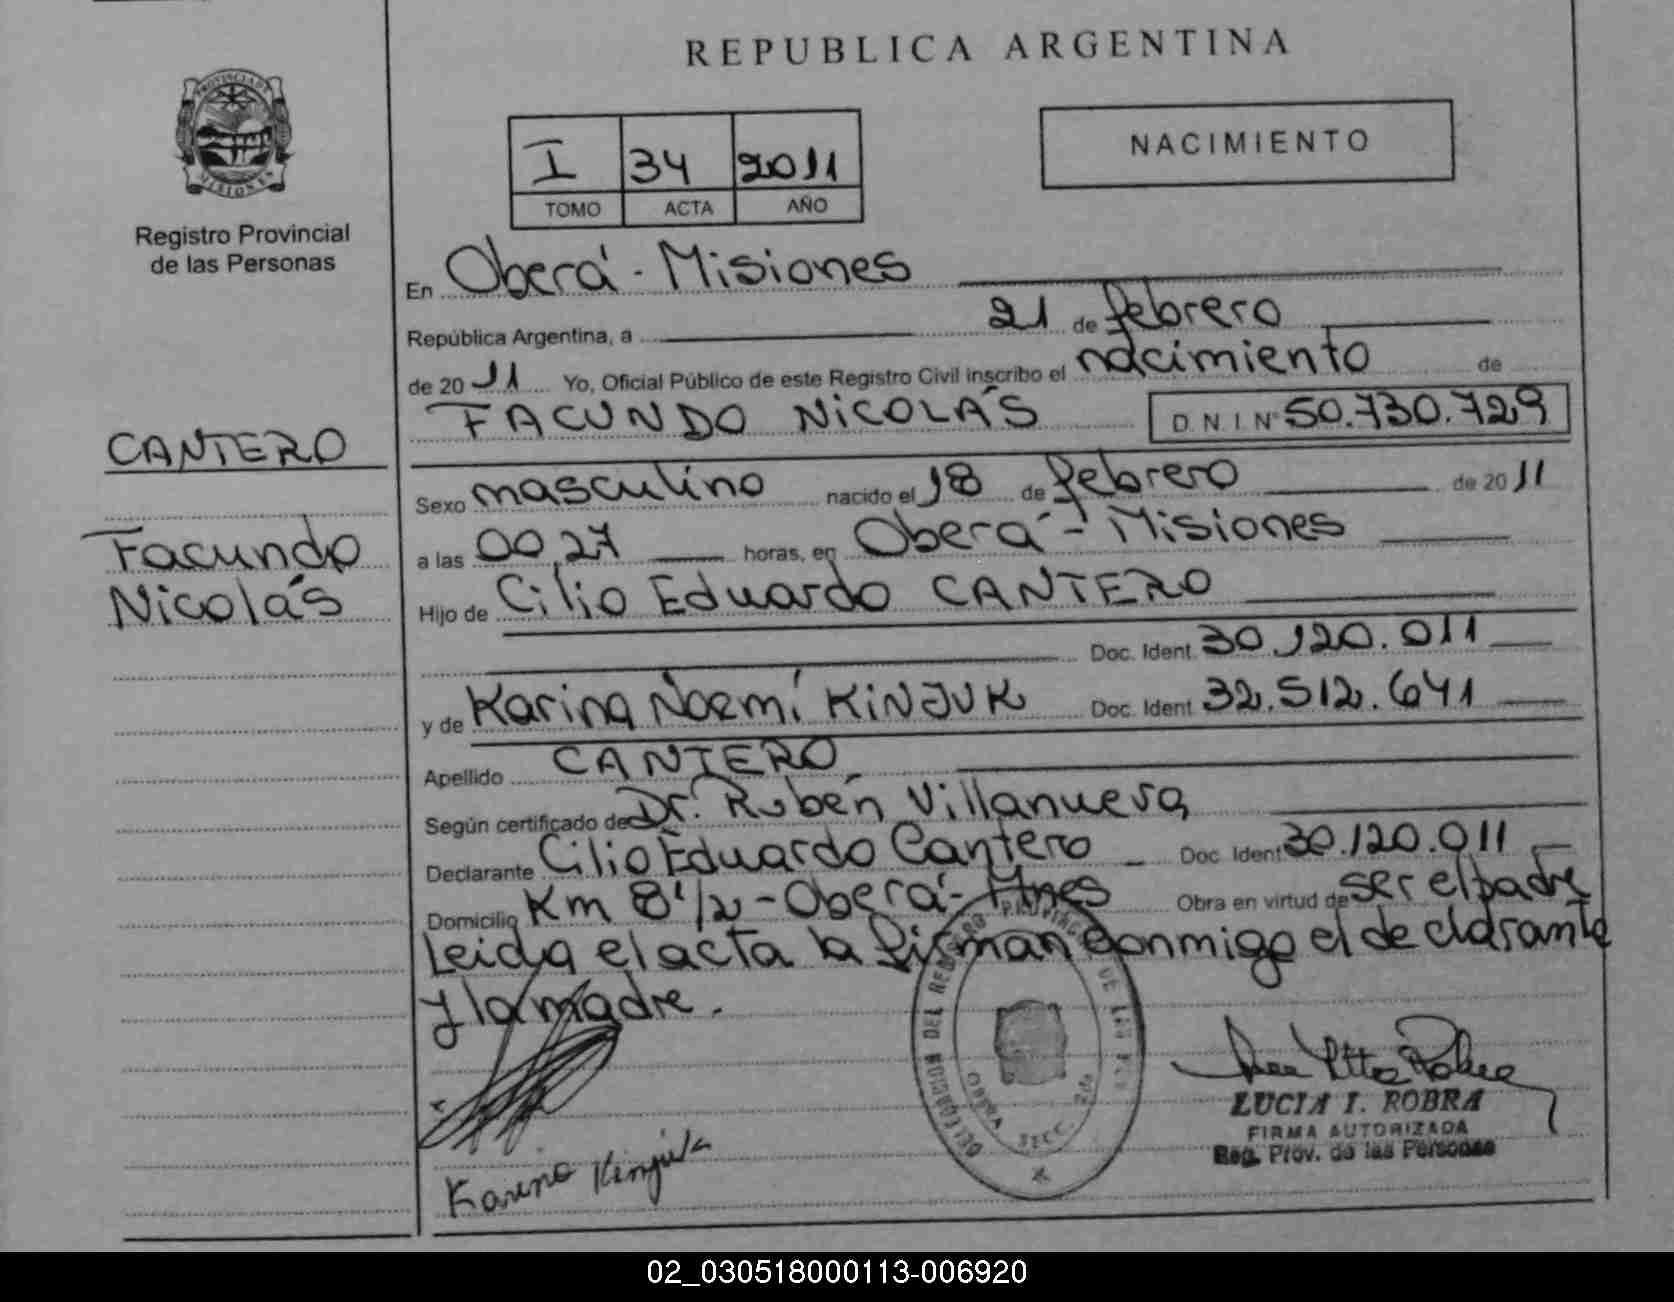 REPUBLICA ARGENTINA
PROVINCIA DE MISIONES
Registro Provincial
de las Personas
I 34 2011
TOMO ACTA AÑO
NACIMIENTO
CANTERO
Facundo
Nicolás
En Oberá - Misiones
República Argentina, a 21 de febrero
de 20 11 Yo, Oficial Público de este Registro Civil inscribo el nacimiento de
FACUNDO NICOLÁS D.N.I Nº 50.730.729
Sexo masculino nacido el 18 de febrero de 20 11
a las 00,27 horas, en Oberá - Misiones
Hijo de Cilio Eduardo CANTERO
Doc. Ident. 30.120.011
y de Karina Noemí KINJUK Doc. Ident. 32.512.641
Apellido CANTERO
Según certificado de Dr. Rubén Villanueva
Declarante Cilio Eduardo Cantero Doc. Ident 30.120.011
Domicilio Km 8 1/2 - Oberá - Mnes Obra en virtud de ser el padre
Leida el acta la firman conmigo el declarante
y la madre.
DELEGACION DEL REGISTRO PROVINCIAL DE LAS
OBERA SECC.
Karina Kinjuk
LUCIA I. ROBRA
FIRMA AUTORIZADA
Reg. Prov. de las Personas
02_030518000113-006920